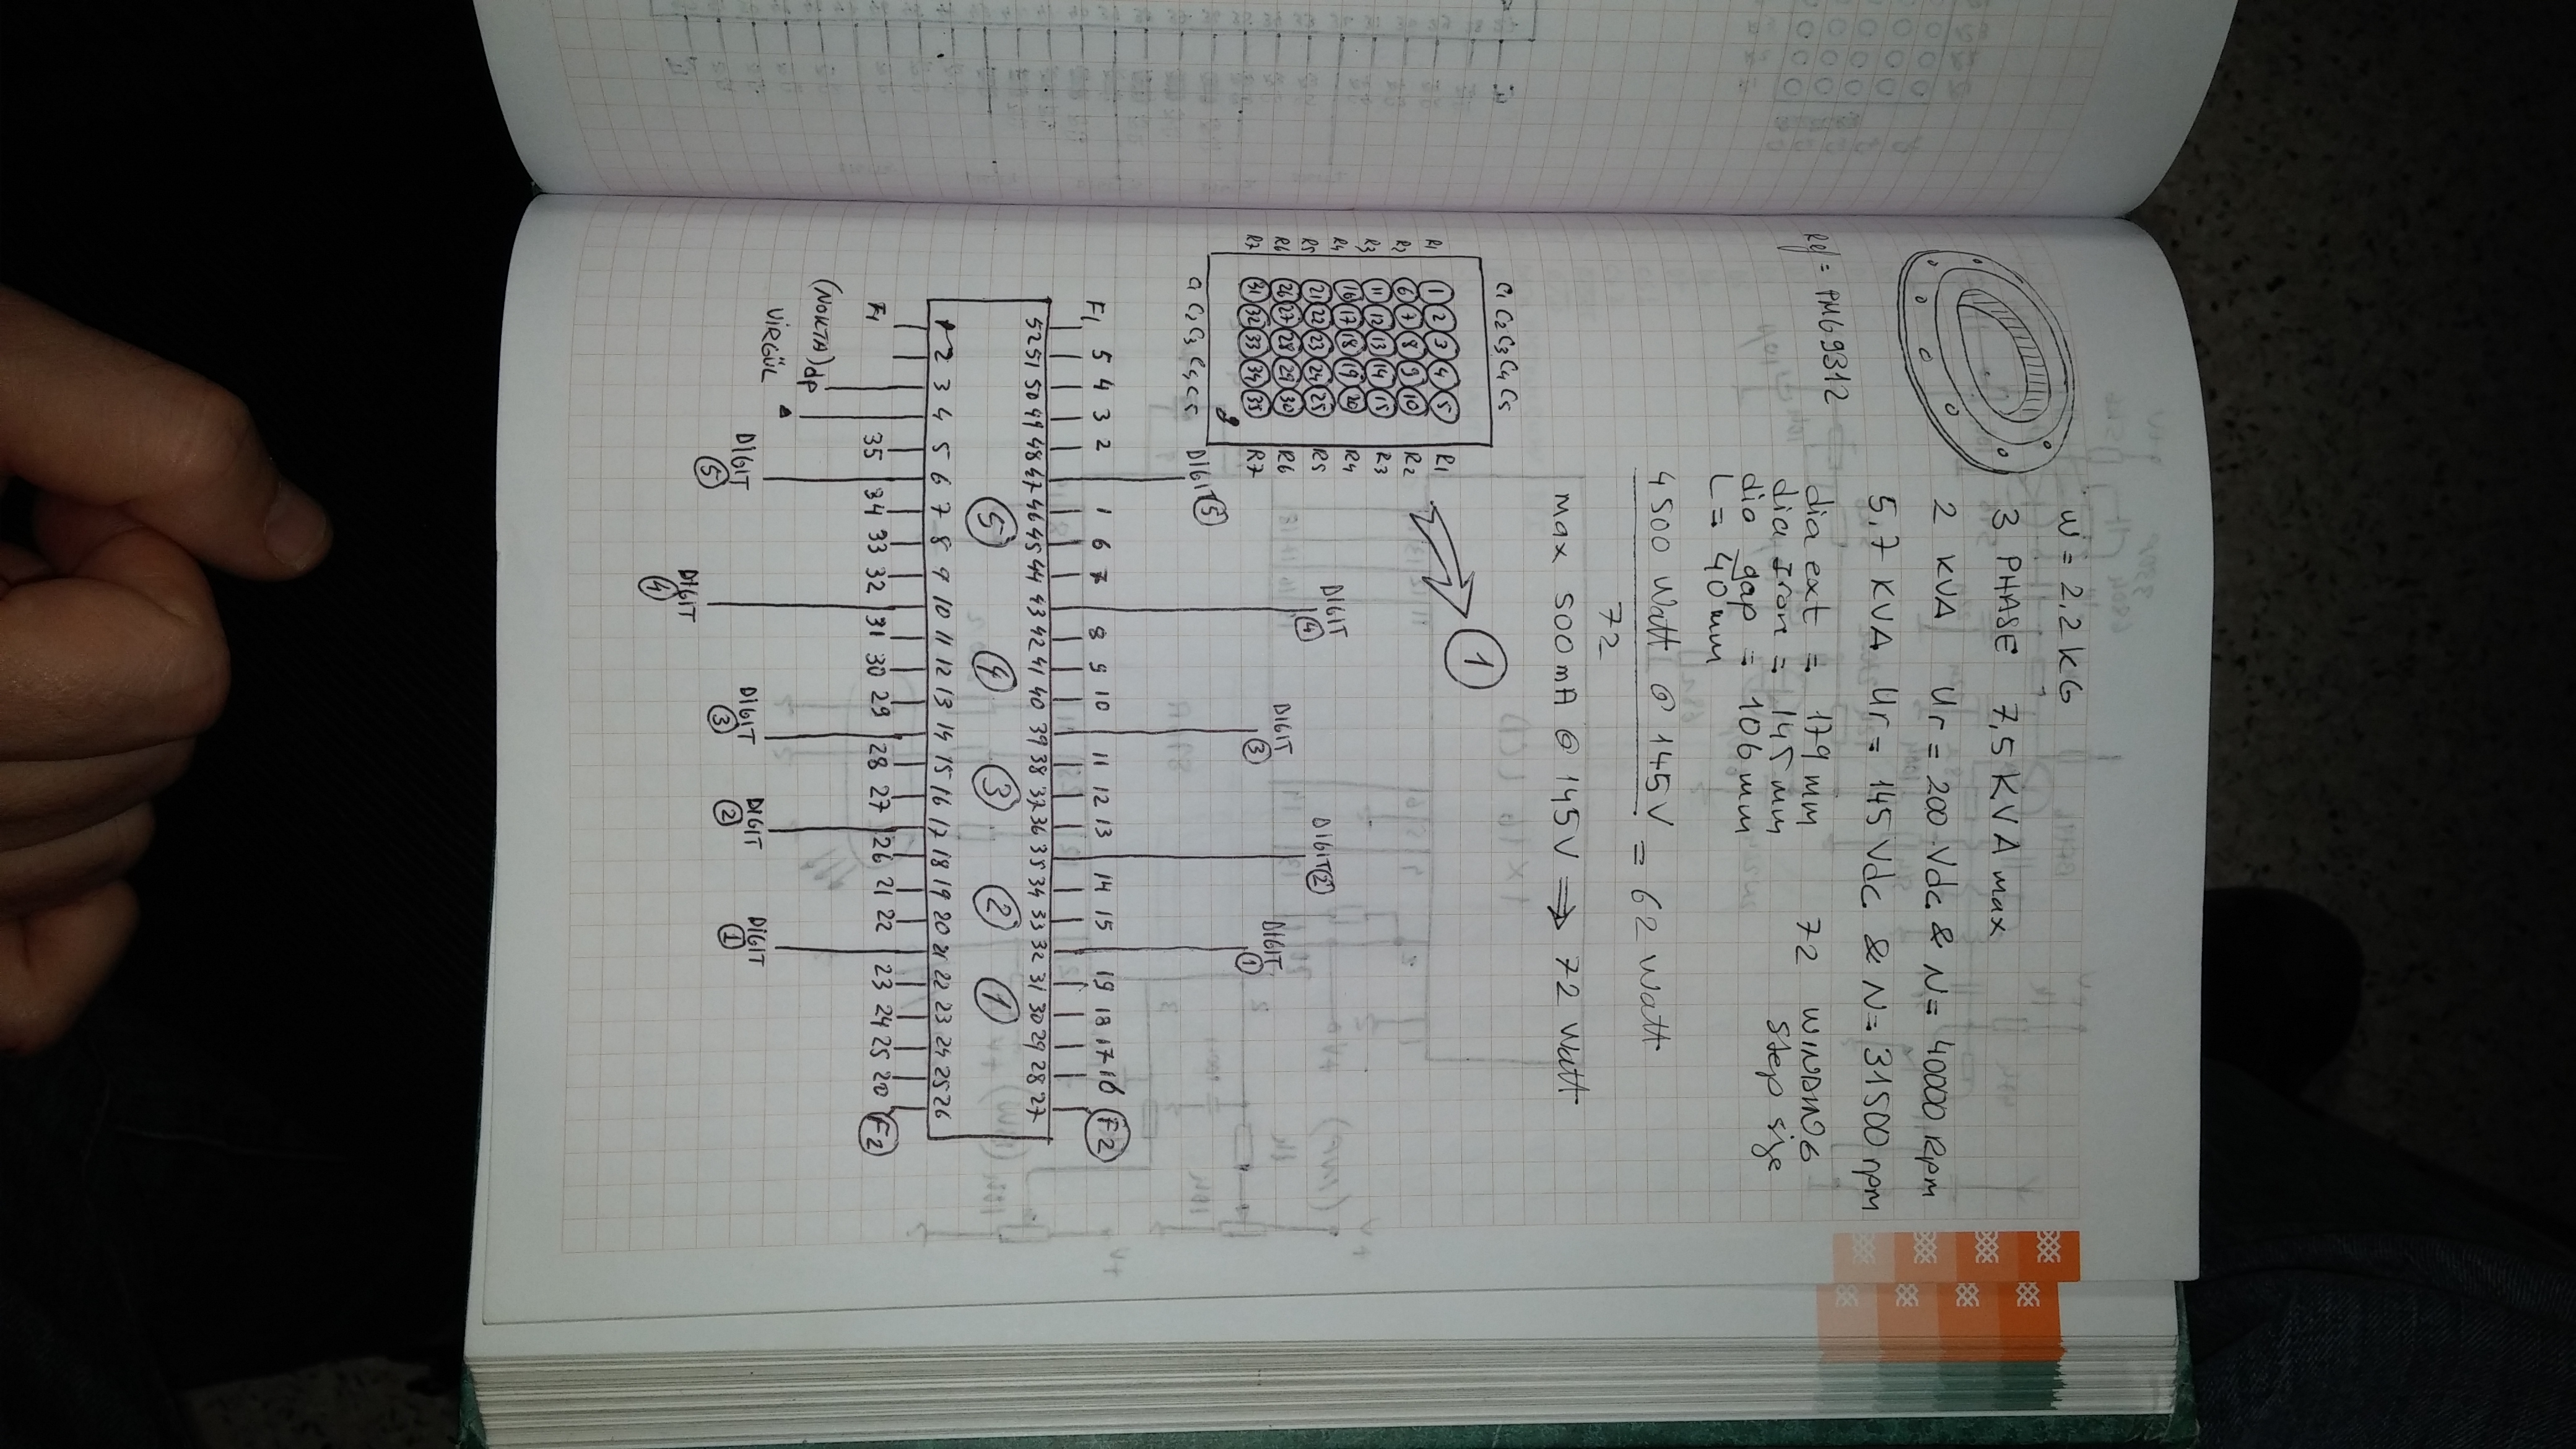 W = 2.2 KG
3 PHASE 7,5 KVA max
2 KVA Ur = 200 Vdc & N = 40000 Rpm
5,7 KVA Ur = 145 Vdc & N = 31500 rpm
Ref = PMG9312
dia ext = 179 mm
dia Iron = 145 mm
dia gap = 106 mm
L = 40 mm
72 WINDING
Step size
4500 Watt @ 145V = 62 Watt
72
max 500mA @ 145V ⇒ 72 Watt
C1 C2 C3 C4 C5
1
R1 1 2 3 4 5 R1
R2 6 7 8 9 10 R2
R3 11 12 13 14 15 R3
R4 16 17 18 19 20 R4
R5 21 22 23 24 25 R5
R6 26 27 28 29 30 R6
R7 31 32 33 34 35 R7
C1 C2 C3 C4 C5
DIGIT 5
DIGIT 4
DIGIT 3
DIGIT 2
DIGIT 1
F1 5 4 3 2 1 6 7 8 9 10 11 12 13 14 15 19 18 17 16 F2
52 51 50 49 48 47 46 45 44 43 42 41 40 39 38 37 36 35 34 33 32 31 30 29 28 27
5 4 3 2 1
1 2 3 4 5 6 7 8 9 10 11 12 13 14 15 16 17 18 19 20 21 22 23 24 25 26
F1 35 34 33 32 31 30 29 28 27 26 21 22 23 24 25 20 F2
(NOKTA) dp
VİRGÜL
DIGIT 5
DIGIT 4
DIGIT 3
DIGIT 2
DIGIT 1